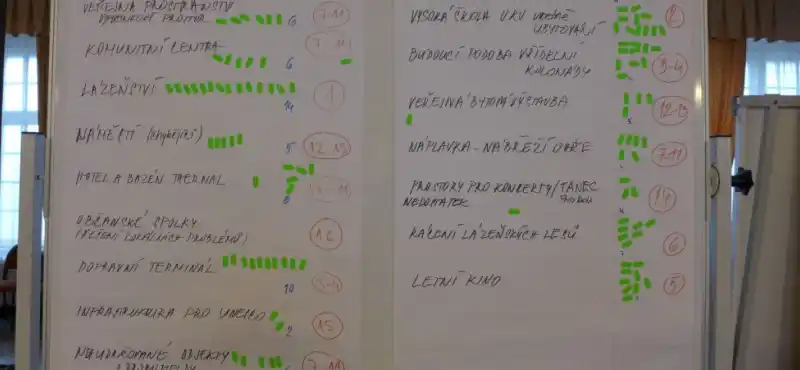 VEŘEJNÁ PROSTRANSTVÍ
6
7-11
KOMUNITNÍ CENTRA
6
7-11
LÁZEŇSTVÍ
14
1
NÁMĚSTÍ (chybějící)
5
12-13
HOTEL A BAZÉN THERMAL
8
7-11
OBČANSKÉ SPOLKY
(ŘEŠENÍ LOKÁLNÍCH PROBLÉMŮ)
16
DOPRAVNÍ TERMINÁL
10
3-4
INFRASTRUKTURA PRO
2
15
OBJEKTY
7-11
VYSOKÁ ŠKOLA V KV včetně
UBYTOVÁNÍ
2
BUDOUCÍ PODOBA VŘÍDELNÍ
KOLONÁDY
3-4
VEŘEJNÁ BYTOVÁ VÝSTAVBA
12-13
NÁPLAVKA - NÁBŘEŽÍ OHŘE
7-11
PROSTORY PRO KONCERTY/TANEC
NEDOSTATEK
14
KÁCENÍ LÁZEŇSKÝCH LESŮ
6
LETNÍ KINO
5